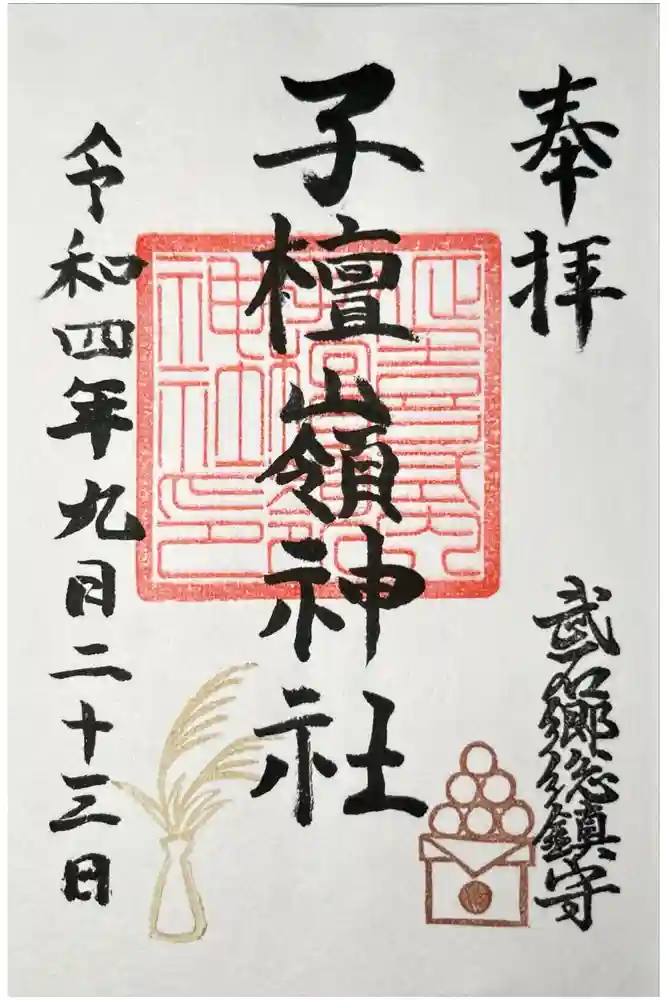 奉拝
武石郷総鎮守
子檀嶺神社
令和四年九月二十三日